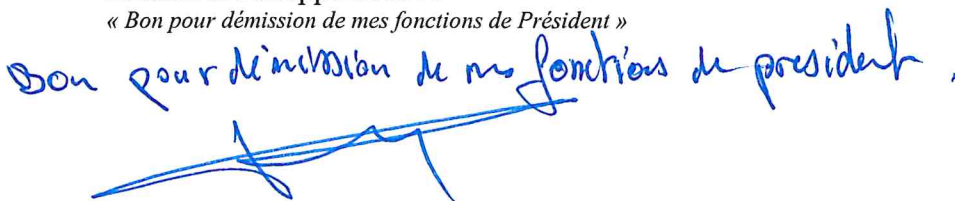 « Bon pour démission de mes fonctions de Président »
Bon pour démission de mes fonctions de president.